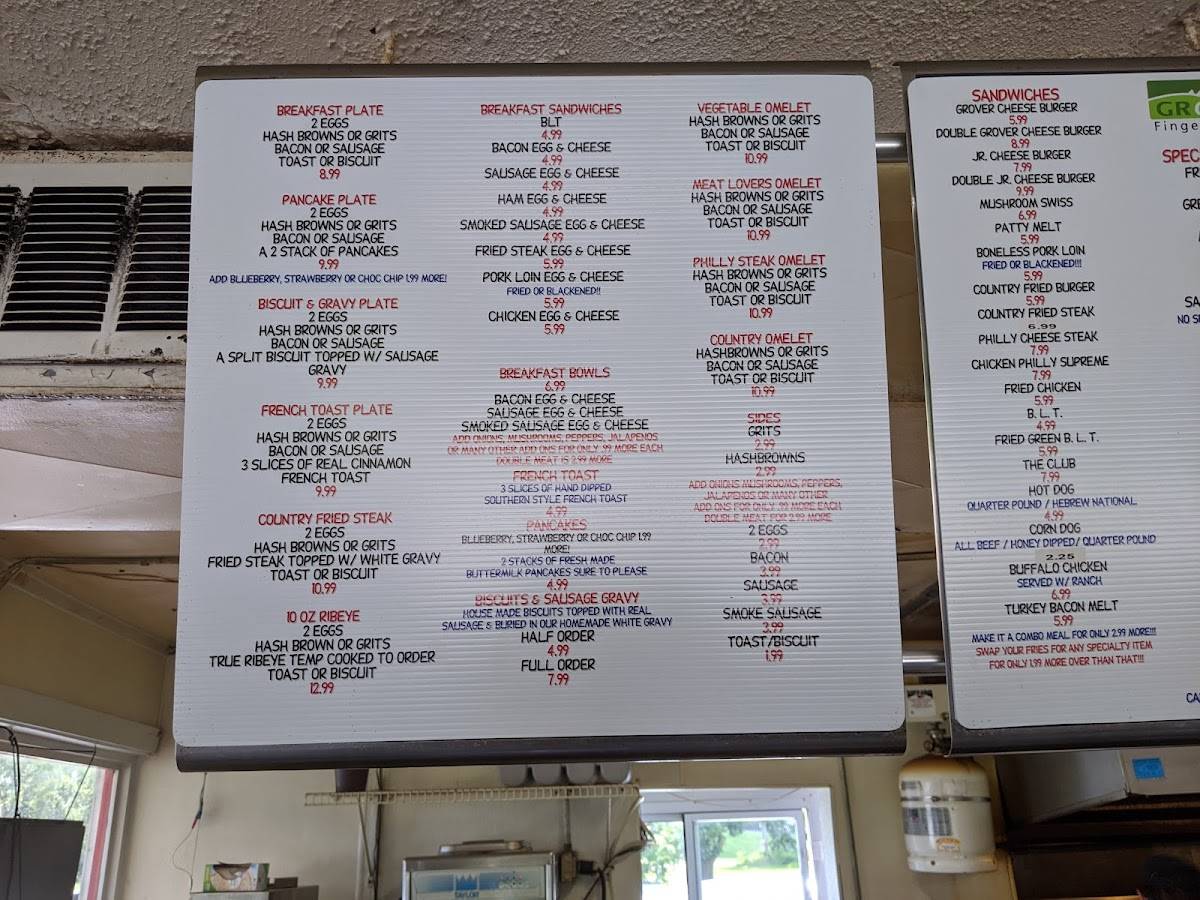 BREAKFAST PLATE
2 EGGS
HASH BROWNS OR GRITS
BACON OR SAUSAGE
TOAST OR BISCUIT
8.99
PANCAKE PLATE
2 EGGS
HASH BROWNS OR GRITS
BACON OR SAUSAGE
A 2 STACK OF PANCAKES
9.99
ADD BLUEBERRY, STRAWBERRY OR CHOC CHIP 1.99 MORE!
BISCUIT & GRAVY PLATE
2 EGGS
HASH BROWNS OR GRITS
BACON OR SAUSAGE
A SPLIT BISCUIT TOPPED W/ SAUSAGE
GRAVY
9.99
FRENCH TOAST PLATE
2 EGGS
HASH BROWNS OR GRITS
BACON OR SAUSAGE
3 SLICES OF REAL CINNAMON
FRENCH TOAST
9.99
COUNTRY FRIED STEAK
2 EGGS
HASH BROWNS OR GRITS
FRIED STEAK TOPPED W/ WHITE GRAVY
TOAST OR BISCUIT
10.99
10 OZ RIBEYE
2 EGGS
HASH BROWN OR GRITS
TRUE RIBEYE TEMP COOKED TO ORDER
TOAST OR BISCUIT
12.99
BREAKFAST SANDWICHES
BLT
4.99
BACON EGG & CHEESE
4.99
SAUSAGE EGG & CHEESE
4.99
HAM EGG & CHEESE
4.99
SMOKED SAUSAGE EGG & CHEESE
4.99
FRIED STEAK EGG & CHEESE
5.99
PORK LOIN EGG & CHEESE
FRIED OR BLACKENED!!
5.99
CHICKEN EGG & CHEESE
5.99
BREAKFAST BOWLS
6.99
BACON EGG & CHEESE
SAUSAGE EGG & CHEESE
SMOKED SAUSAGE EGG & CHEESE
ADD ONIONS, MUSHROOMS, PEPPERS, JALAPENOS
OR MANY OTHER ADD ONS FOR ONLY .99 MORE EACH
DOUBLE MEAT IS 2.99 MORE
FRENCH TOAST
3 SLICES OF HAND DIPPED
SOUTHERN STYLE FRENCH TOAST
4.99
PANCAKES
BLUEBERRY, STRAWBERRY OR CHOC CHIP 1.99
MORE!
2 STACKS OF FRESH MADE
BUTTERMILK PANCAKES SURE TO PLEASE
4.99
BISCUITS & SAUSAGE GRAVY
HOUSE MADE BISCUITS TOPPED WITH REAL
SAUSAGE & BURIED IN OUR HOMEMADE WHITE GRAVY
HALF ORDER
4.99
FULL ORDER
7.99
VEGETABLE OMELET
HASH BROWNS OR GRITS
BACON OR SAUSAGE
TOAST OR BISCUIT
10.99
MEAT LOVERS OMELET
HASH BROWNS OR GRITS
BACON OR SAUSAGE
TOAST OR BISCUIT
10.99
PHILLY STEAK OMELET
HASH BROWNS OR GRITS
BACON OR SAUSAGE
TOAST OR BISCUIT
10.99
COUNTRY OMELET
HASHBROWNS OR GRITS
BACON OR SAUSAGE
TOAST OR BISCUIT
10.99
SIDES
GRITS
2.99
HASHBROWNS
2.99
ADD ONIONS MUSHROOMS, PEPPERS,
JALAPENOS OR MANY OTHER
ADD ONS FOR ONLY .99 MORE EACH
DOUBLE MEAT FOR 2.99 MORE
2 EGGS
2.99
BACON
3.99
SAUSAGE
3.99
SMOKE SAUSAGE
3.99
TOAST/BISCUIT
1.99
SANDWICHES
GROVER CHEESE BURGER
5.99
DOUBLE GROVER CHEESE BURGER
8.99
JR. CHEESE BURGER
7.99
DOUBLE JR. CHEESE BURGER
9.99
MUSHROOM SWISS
6.99
PATTY MELT
5.99
BONELESS PORK LOIN
FRIED OR BLACKENED!!!
5.99
COUNTRY FRIED BURGER
5.99
COUNTRY FRIED STEAK
6.99
PHILLY CHEESE STEAK
7.99
CHICKEN PHILLY SUPREME
7.99
FRIED CHICKEN
5.99
B. L. T.
4.99
FRIED GREEN B. L. T.
5.99
THE CLUB
7.99
HOT DOG
QUARTER POUND / HEBREW NATIONAL
4.99
CORN DOG
ALL BEEF / HONEY DIPPED/ QUARTER POUND
2.25
BUFFALO CHICKEN
SERVED W/ RANCH
6.99
TURKEY BACON MELT
5.99
MAKE IT A COMBO MEAL FOR ONLY 2.99 MORE!!!
SWAP YOUR FRIES FOR ANY SPECIALTY ITEM
FOR ONLY 1.99 MORE OVER THAN THAT!!!
GR
Finge
SPEC
FR
GRE
SA
NO S
CA
TAYLOR